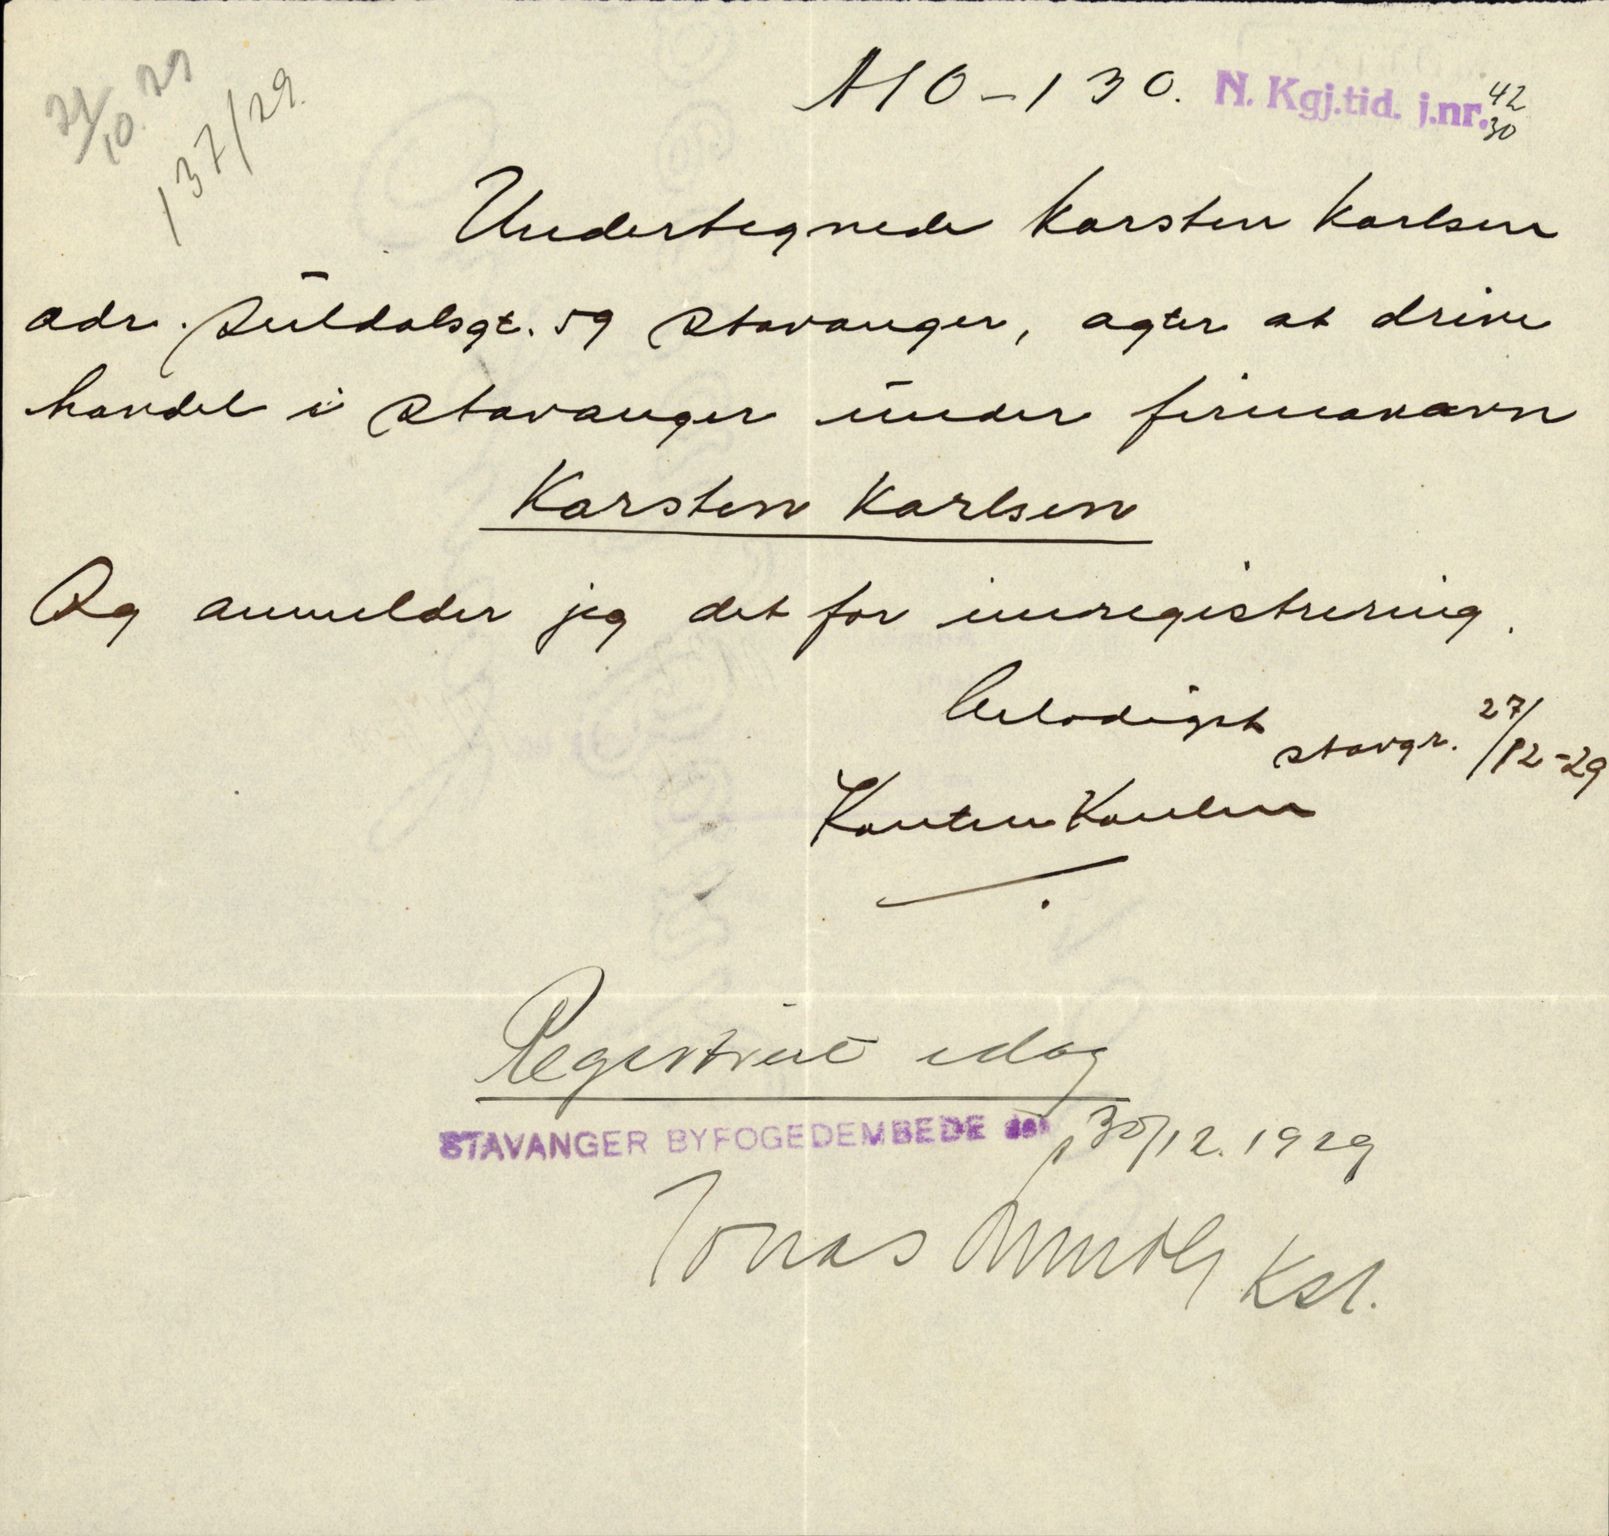 A 10 - 130. N. Kgj.tid. j.nr. 42
30
137/29.
Undertegnede Karsten Karlsen
adr. Suldalsgt. 59 Stavanger, agter at drive
handel i Stavanger under firmanavn
Karsten Karlsen
Og anmelder jeg det for inregistrering.
Ærbødigst
Stavgr. 27/12-29
Karsten Karlsen
Registrert idag
STAVANGER BYFOGEDEMBEDE 30/12. 1929
Jonas Kst.